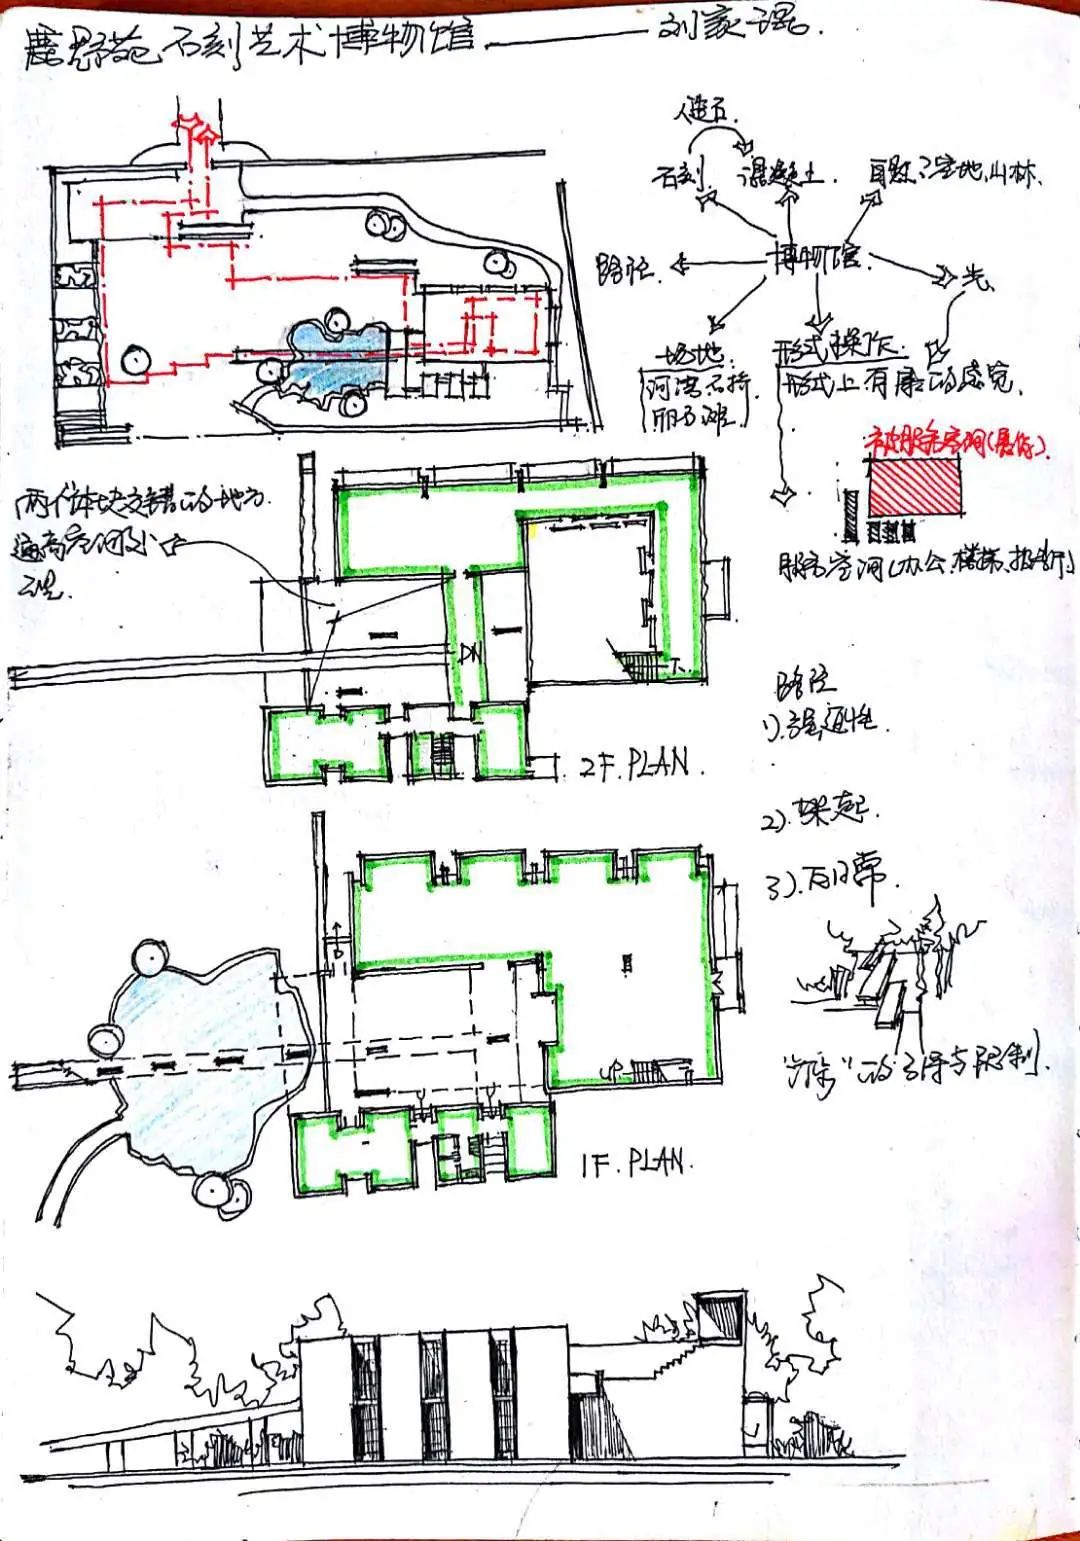 鹿野苑石刻艺术博物馆——刘家琨.
人造石.
石刻. 混凝土. 自然:空地、山林.
路径. 博物馆. 光.
场地: 形式操作.
河滩 形式上有康的感觉.
被服务空间(展厅).
两个体块交错的地方.
通高空间及小
服务空间(办公、楼梯、
路径
1).
2F. PLAN.
2).架起.
3).反日常.
UP
"的引导与限制.
1F. PLAN.